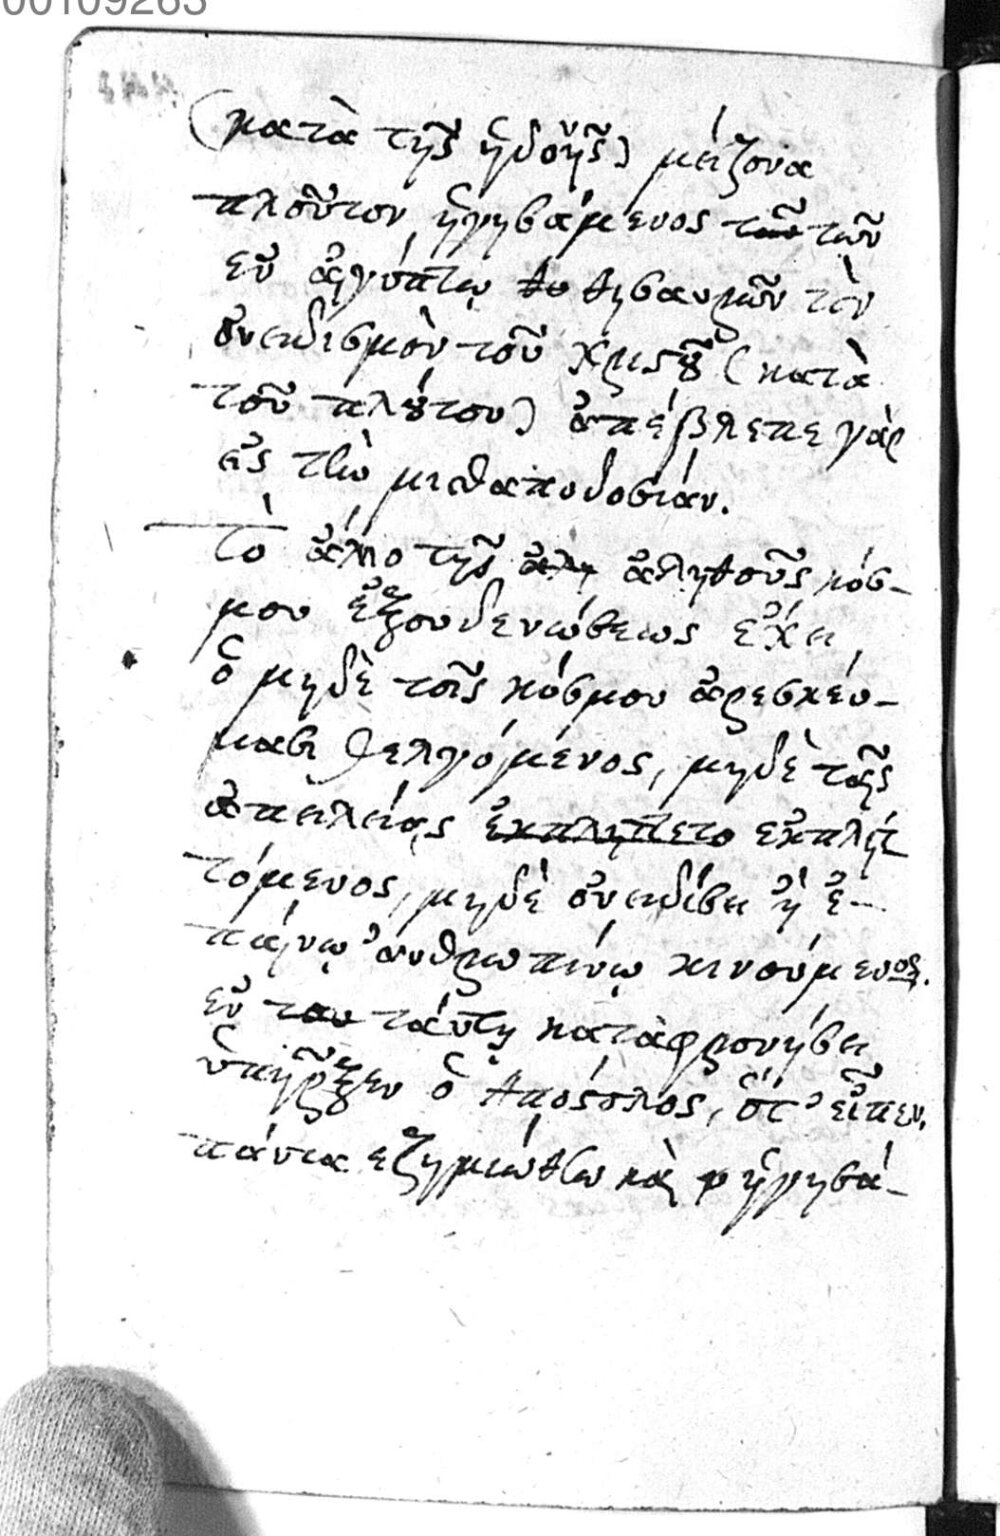 00109263
(κατὰ τῆς ἡδονῆς) μείζονα
πλοῦτον ἡγησάμενος τῶν τῶν
ἐν ἀιγύπτῳ θυ θησαυρῶν τὸν
ὀνειδισμὸν τοῦ χριστοῦ (κατὰ
τοῦ πλούτου) ἀπέβλεπε γὰρ
εἰς τὴν μισθαποδοσίαν.
Τὸ ἄκρο τῆς ἀλη ἀληθοῦς κόσ-
μου ἐξουδενώσεως ἔχει
ὁ μηδὲ τοῖς κόσμου ἀρεσκεύ-
μασι θελγόμενος, μηδὲ ταῖς
ἀπειλείαις ἐκπλήττετο ἐκπλητ
τόμενος, μηδὲ ὀνειδίσει ἢ ἐ-
παίνῳ ἀνθρωπίνῳ κινούμενος.
ἐν ταυ ταύτῃ καταφρονήσει
ὑπῆρξεν ὁ ἀπόστολος, ὅτ' εἶπεν.
πάντα ἐζημιώθην καὶ ἡγησά-